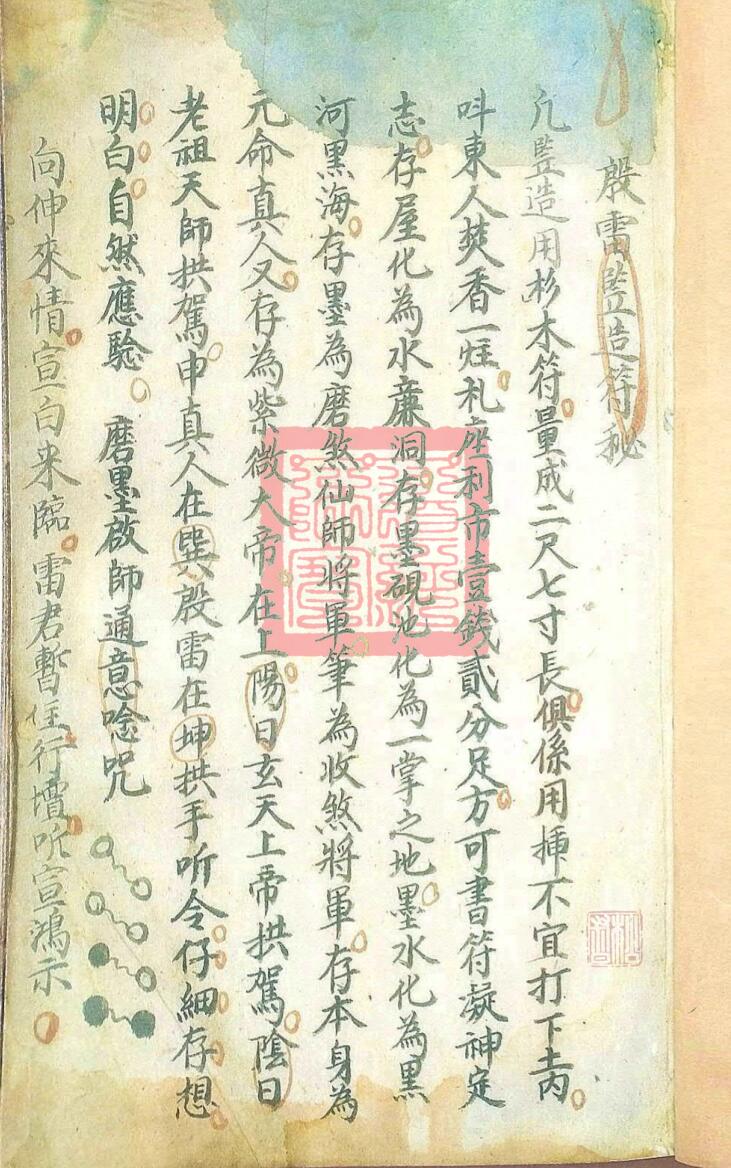 殷雷竖造符秘
凢竖造用杉木符量成二尺七寸長俱係用揷不宜打下土内
呌東人焚香一炷札座利市壹錢貳分足方可書符凝神定
志存屋化為水亷洞存墨硯池化為一掌之地墨水化為黒
河黒海存墨為磨煞仙師将軍筆為收煞將軍存本身為
元命真人又存為紫微大帝在上陽日玄天上帝拱駕陰日
老祖天師拱駕申真人在巽殷雷在坤拱手听令仔細存想
明白自然應驗 磨墨啟師通意唸咒
向伸來情宣白来臨雷君暫住行壇听宣鴻示